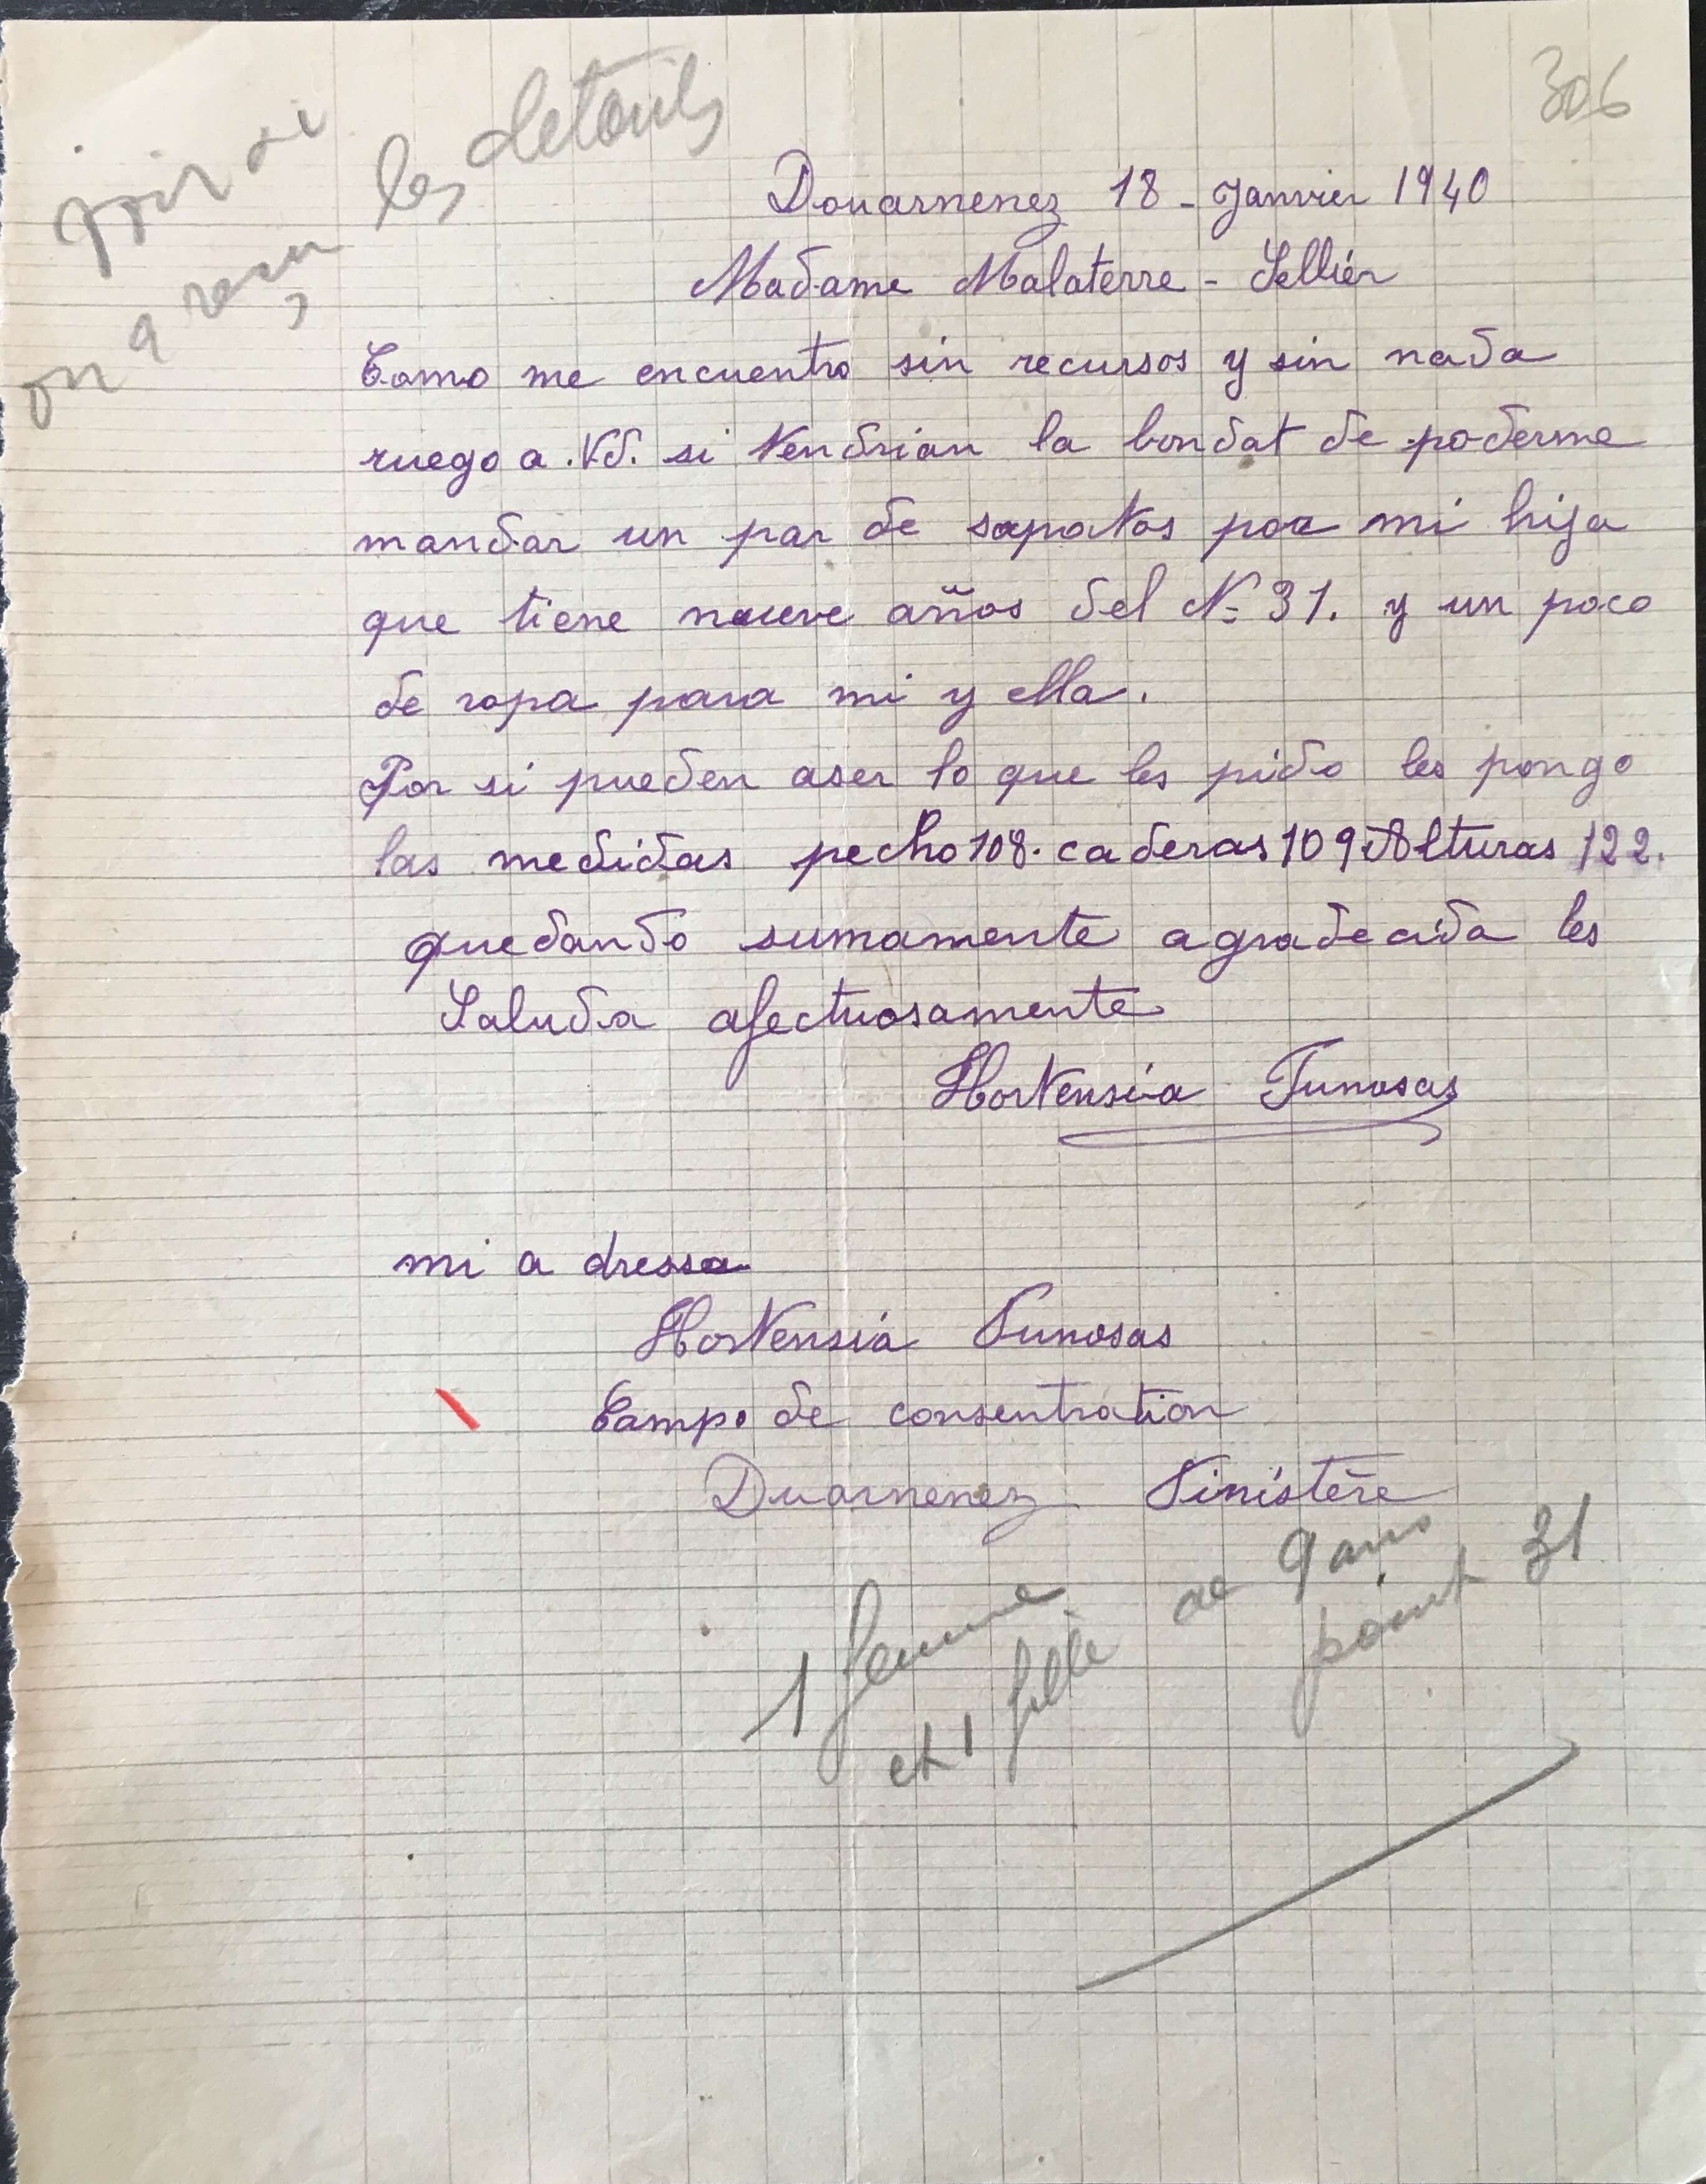 306
voir si
on a reçu les détails
Douarnenez 18 - Janvier 1940
Madame Malaterre -Selliér
Como me encuentro sin recursos y sin nada
ruego a .Vd. si tendrian la bondat de poderme
mandar un par de sapatos par mi hija
que tiene nueve años del Nº 31. y un poco
de ropa para mi y ella.
Por si pueden aser lo que les pido les pongo
las medidas pecho 108. caderas 109 Alturas 122.
quedando sumamente agradecida les
Saluda afectuosamente
Hortensia Funosas
mi a dressa
Hortensia Funosas
Campo de consentration
Duarnenez Finistère
1 femme
et 1 fille de 9 ans
point 31